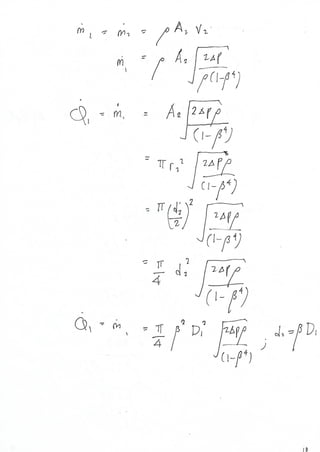 ṁ₁ = ṁ₂ = ρ A₂ V₂
ṁ₁ = ρ A₂ √(2Δp / ρ(1-β⁴))
Q̇₁ = ṁ₁ = A₂ √(2Δpρ / (1-β⁴))
= π r₂² √(2Δpρ / (1-β⁴))
= π (d₂/2)² √(2Δpρ / (1-β⁴))
= π/4 d₂² √(2Δpρ / (1-β⁴))
Q̇₁ = ṁ₁ = π/4 β² D₁² √(2Δpρ / (1-β⁴)) ; d₂ = β D₁